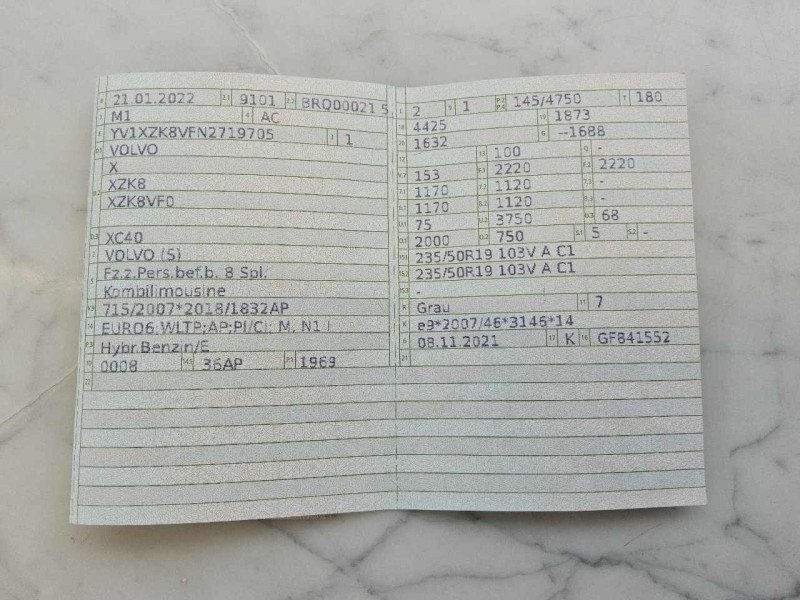 21.01.2022 9101 BRQ00021 5
M1 AC
YV1XZK8VFN2719705 1
VOLVO
X
XZK8
XZK8VF0
XC40
VOLVO (S)
Fz.z.Pers.bef.b. 8 Spl.
Kombilimousine
715/2007*2018/1832AP
EURO6;WLTP;AP;PI/CI; M, N1 I
Hybr.Benzin/E
0008 36AP 1969
2 1 145/4750 180
4425 1873
1632 --1688
100 -
153 2220 2220
1170 1120 -
1170 1120 -
75 3750 68
2000 750 5 -
235/50R19 103V A C1
235/50R19 103V A C1
-
Grau 7
e9*2007/46*3146*14
08.11.2021 K GF841552